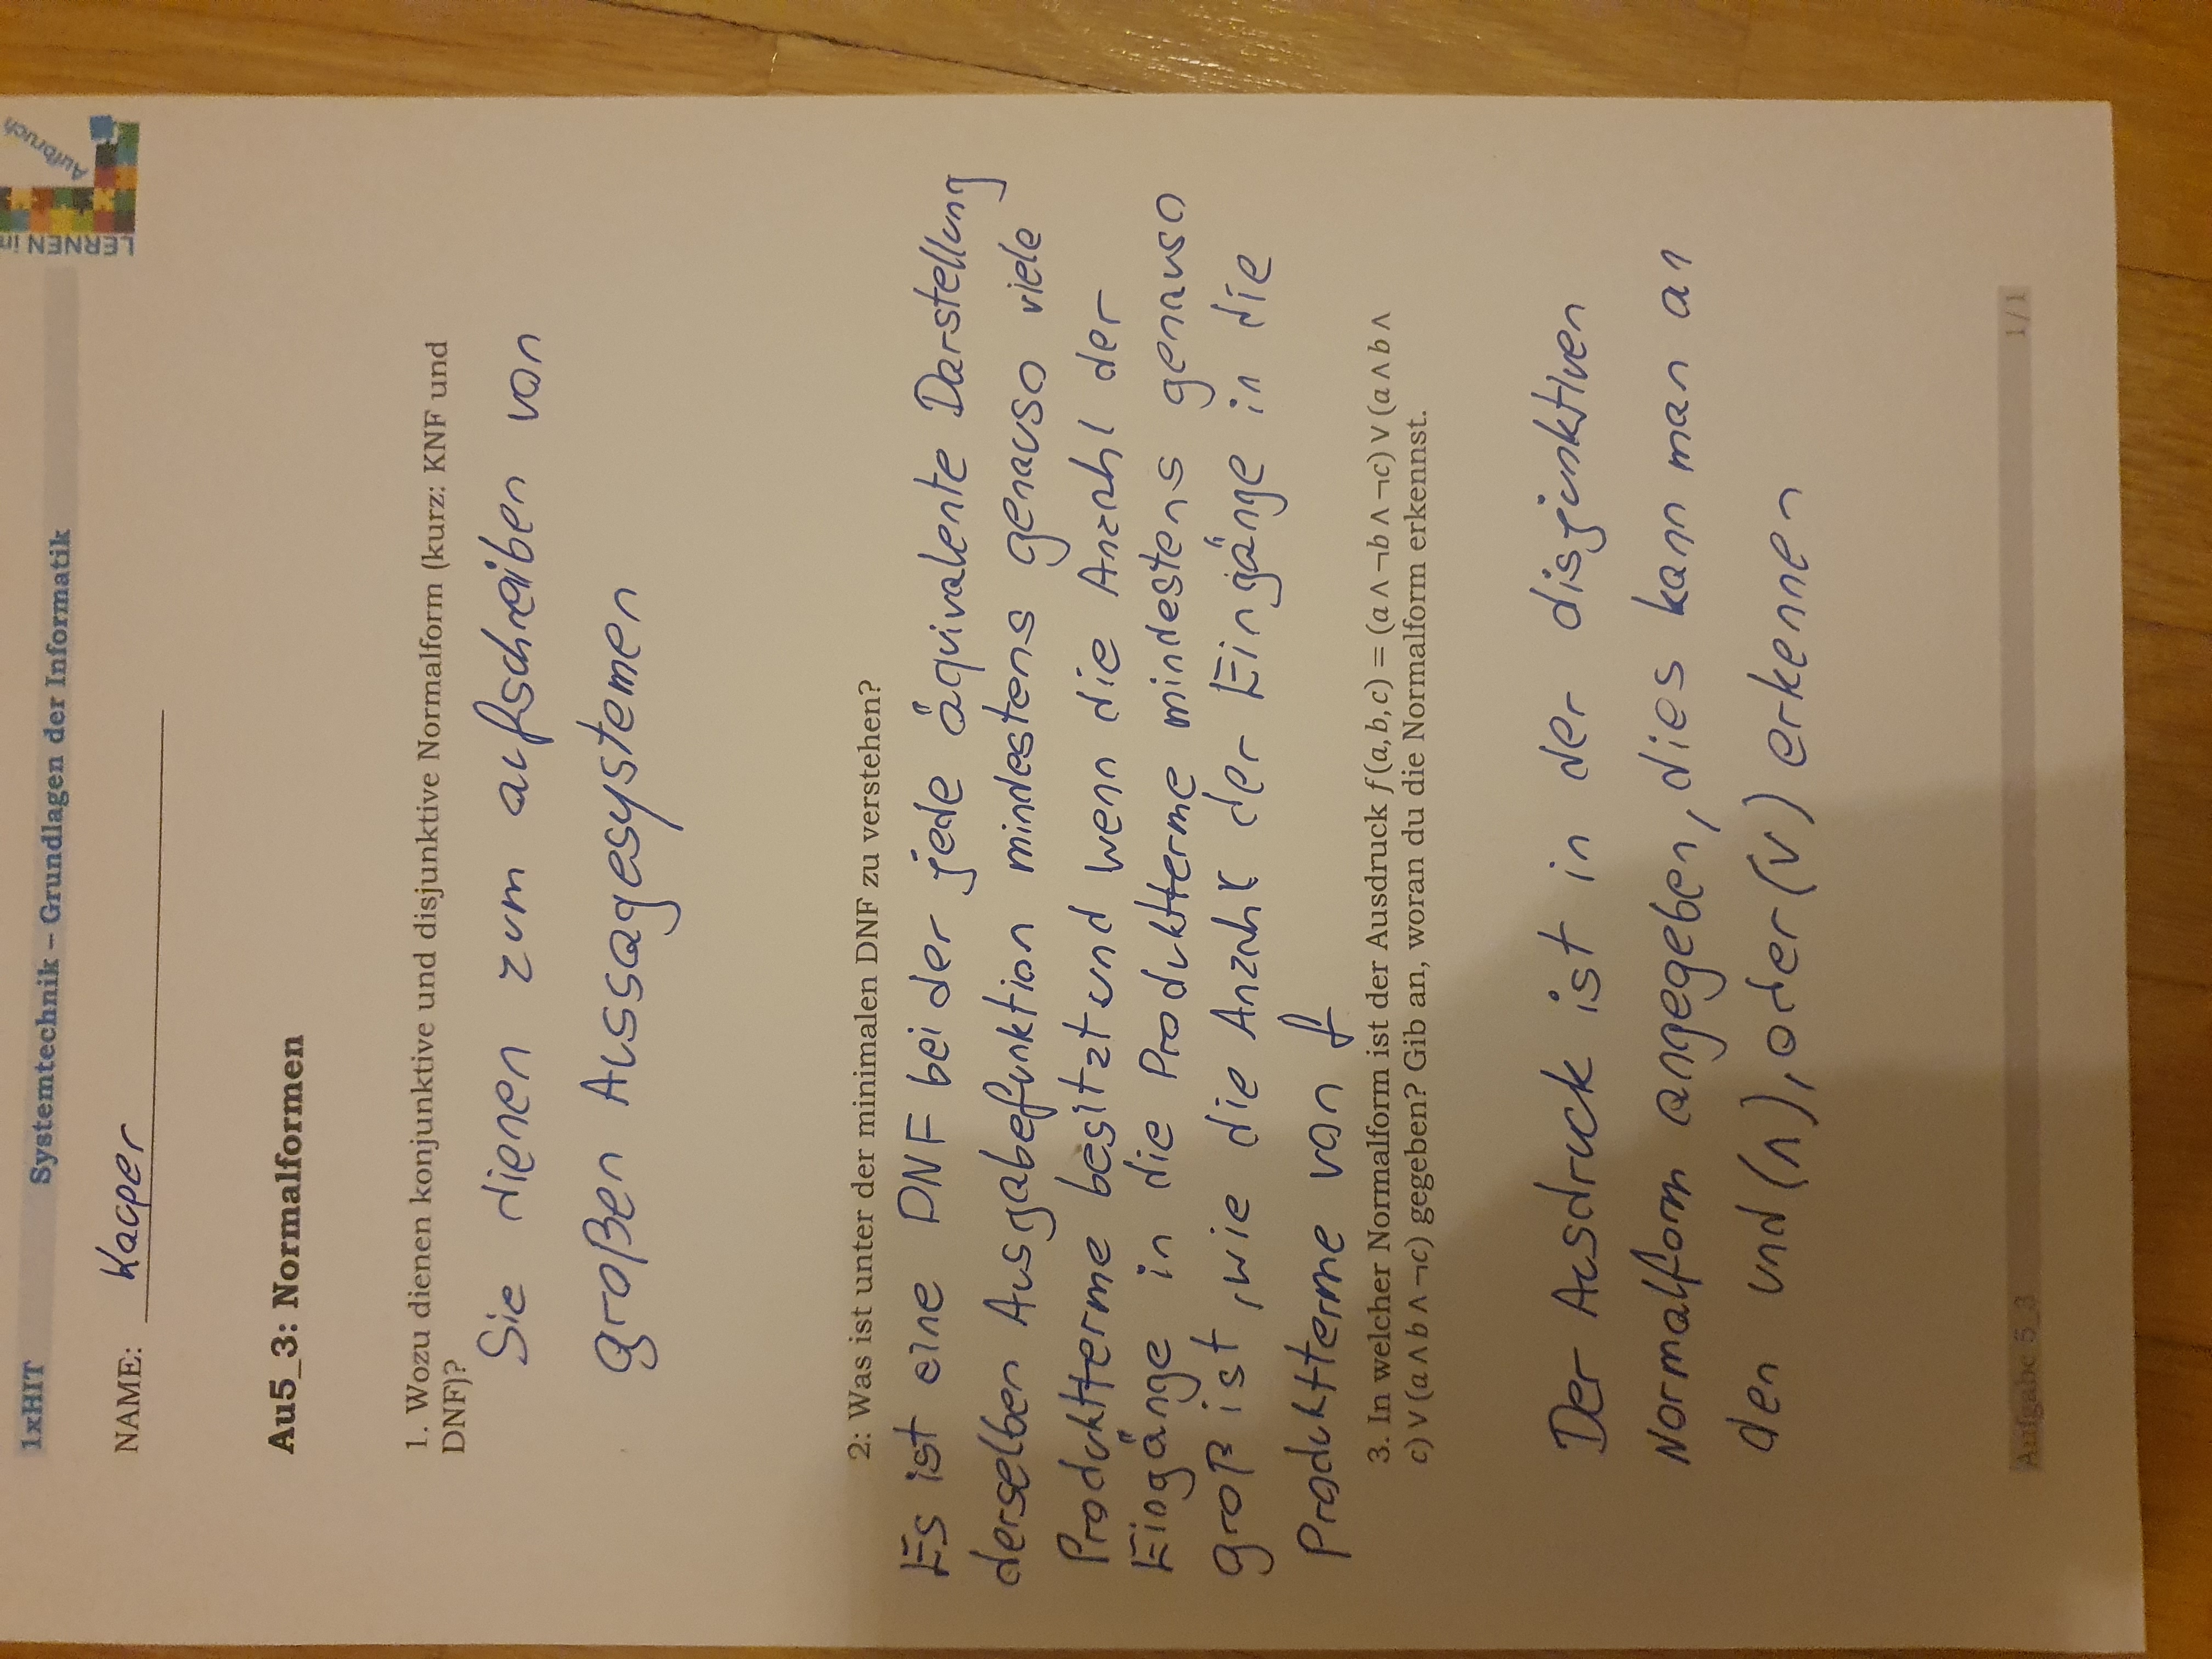 1xHIT
Systemtechnik – Grundlagen der Informatik
LERNEN im
Aufbruch
NAME: Kacper
Au5_3: Normalformen
1. Wozu dienen konjunktive und disjunktive Normalform (kurz: KNF und
DNF)?
Sie dienen zum aufschreiben von
großen Aussagesystemen
2: Was ist unter der minimalen DNF zu verstehen?
Es ist eine DNF bei der jede äquivalente Darstellung
derselben Ausgabefunktion mindestens genauso viele
Produktterme besitzt und wenn die Anzahl der
Eingänge in die Produktterme mindestens genauso
groß ist, wie die Anzahl der Eingänge in die
Produktterme von f
3. In welcher Normalform ist der Ausdruck f(a, b, c) = (a ∧ ¬b ∧ ¬c) ∨ (a ∧ b ∧
c) ∨ (a ∧ b ∧ ¬c) gegeben? Gib an, woran du die Normalform erkennst.
Der Ausdruck ist in der disjunktiven
Normalform angegeben, dies kann man an
den und (∧), oder (∨) erkennen
Aufgabe 5_3
1/1